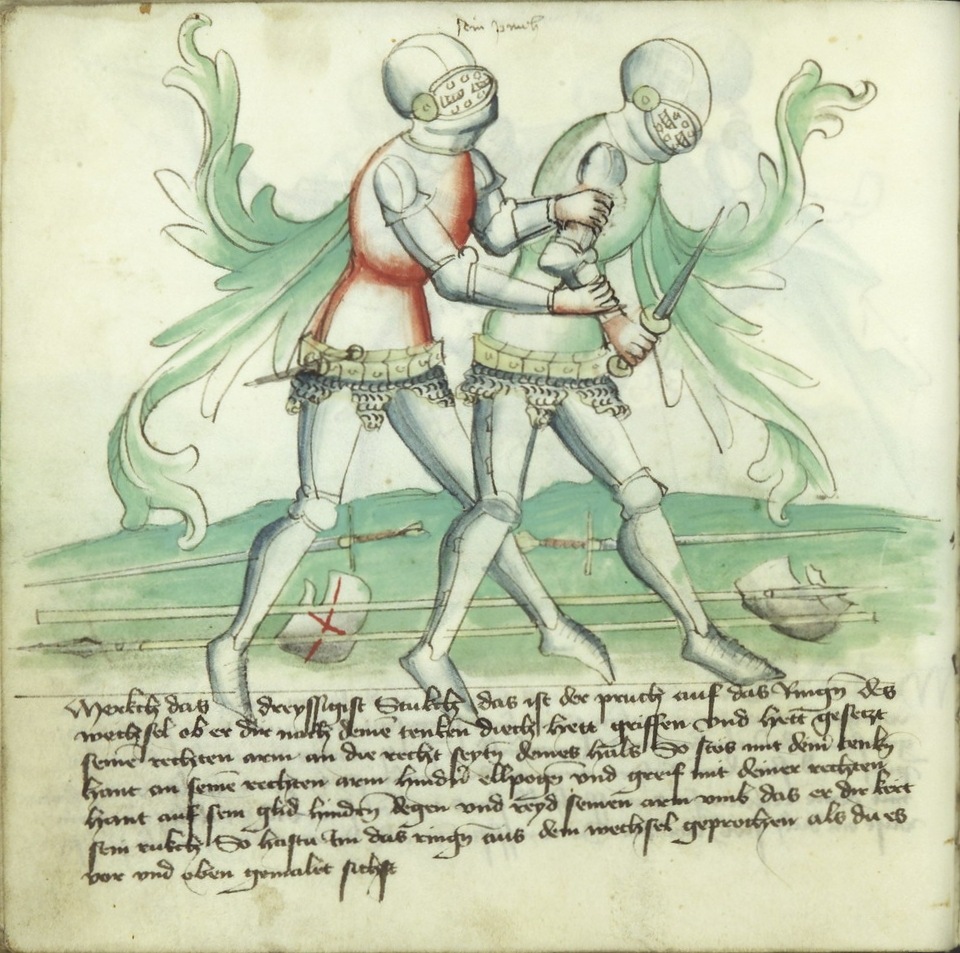 sein pruch
Merkch das dreyssigist Stukch das ist der pruch auf das Ringn̄ des
wechsel ob er dir nach deinē tenken diech hett griffen vnd hett gesetzt
seinē rechten arm an die recht seytn̄ deines hals So stos mit dein̄ tenkn̄
hant an seinē rechten arm hindn̄ ellpogn̄ vnd greif mit deiner rechten
hant auf sein glid hinden̄ degen vnd reyd seinen arm vmb das er dir kert
sein rukch So hastu Im das ringn̄ aus dem wechsel geprochen als du es
vor vnd oben gemalet sichst